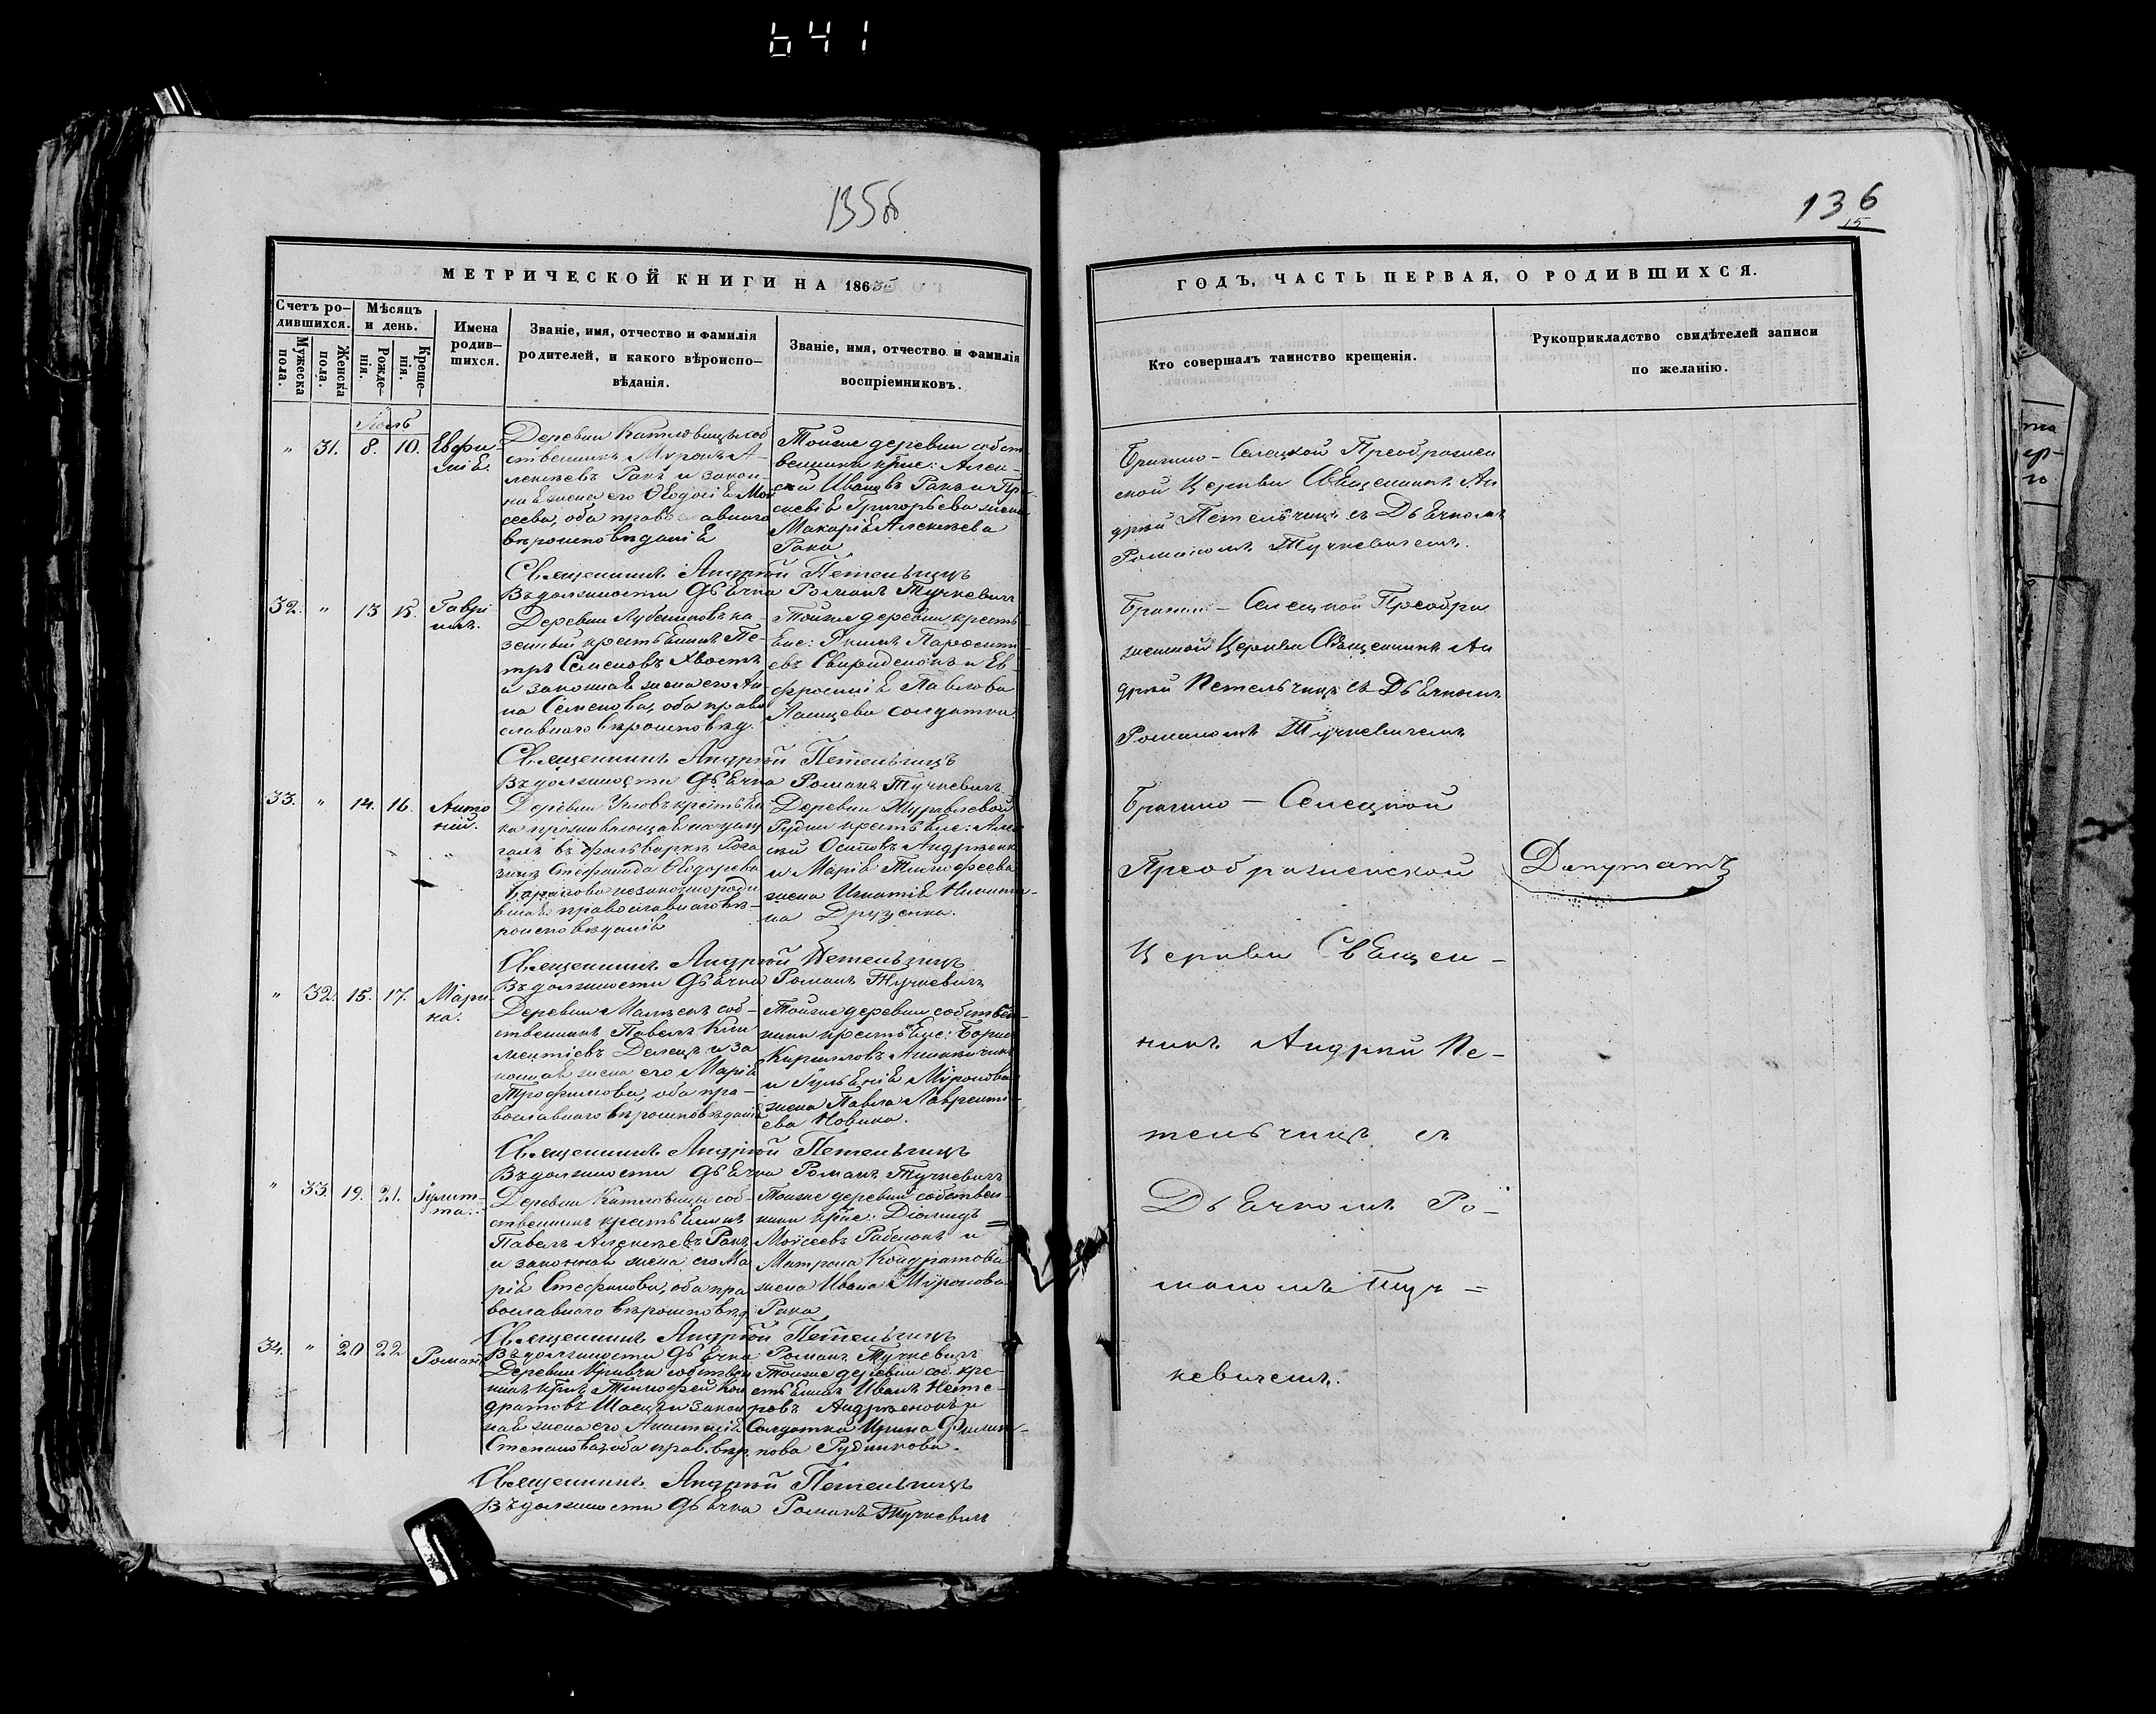 641
135об
136
15
МЕТРИЧЕСКОЙ КНИГИ НА 1865
ГОДЪ, ЧАСТЬ ПЕРВАЯ, О РОДИВШИХСЯ.
Счетъ ро-
дившихся.
Мужеска
пола.
Женска
пола.
Мѣсяцъ
и день.
Рожде-
нія.
Креще-
нія.
Имена
родив-
шихся.
Званіе, имя, отчество и фамилія
родителей, и какого вѣроиспо-
вѣданія.
Званіе, имя, отчество и фамилія
воспріемниковъ.
Кто совершалъ таинство крещенія.
Рукоприкладство свидѣтелей записи
по желанію.
"
31.
8.
10.
Евфи-
міѧ.
соб
ственникъ Миронъ А-
лексѣевъ Ракъ и закон-
наѧ жена его Ѳеодосіѧ Мои
сеева, оба православнаго
вѣроисповѣданіѧ
Тойже деревни собст
венники крис: Алек-
сѣй Ивановъ Ракъ и Пра-
скевіѧ Григорьева жена
Макаріѧ Алексѣева
Рака
Брагино-Селецкой Преображен
ской Церкви Свѧщенникъ Ан
дрей Петельчицъ съ Дьѧчкомъ
Романомъ Тучкевичемъ.
Свѧщенникъ Андрей Петельчицъ
Въ должности дьѧчка Романъ Тучкевичъ
32.
"
13
15.
Гаврі
илъ.
Деревни
зенный крестьѧнинъ Пе-
тръ Семеновъ Хвостъ
и законнаѧ жена его Ан-
на Семенова, оба право
славнаго вѣроисповѣд.
Тойже деревни кресть-
ѧне: Ѧкимъ
евъ Свириденокъ и Ев-
фросиніѧ Павлова
солдатка.
Брагино-Селецкой Преобра
женской Церкви Свѧщенникъ Ан
дрей Петельчицъ съ Дьѧчкомъ
Романомъ Тучкевичемъ
Свѧщенникъ Андрей Петельчицъ
Въ должности дьѧчка Романъ Тучкевичъ
33.
"
14.
16.
Анто
ній.
Деревни
ка проживающаѧ
въ фольваркѣ
Стефанида Ѳеодорова
незаконно роди
вшаѧ православнаго вѣ-
роисповѣданіѧ
Деревни Журавлевой
Рудни крестьѧне: Алек
сѣй Осиповъ Андрѣенко
и Маріѧ Тимофеева
жена Игнатіѧ Никити-
на
Брагино-Селецкой
Преображенской
Церкви Свѧщен-
никъ Андрей Пе-
тельчицъ съ
Дьѧчкомъ Ро-
маномъ Туч=
кевичемъ.
Депутатъ
Свѧщенникъ Андрей Петельчицъ
Въ должности дьѧчка Романъ Тучкевичъ
"
32.
15.
17.
Мари-
на.
Деревни соб-
ственникъ Павелъ Кли
ментіевъ и за
коннаѧ жена его Маріѧ
Трофимова, оба пра-
вославнаго вѣроисповѣданіѧ
Тойже деревни собствен-
ники крестьѧне: Борисъ
Кирилловъ
и Іульѧніѧ Миронова
жена Павла Лавренті-
ева Новика.
Свѧщенникъ Андрей Петельчицъ
Въ должности дьѧчка Романъ Тучкевичъ
"
33.
19.
21.
Іулит-
та.
Деревни соб-
ственникъ крестьѧнинъ
Павелъ Алексѣевъ Ракъ
и законнаѧ жена его Ма
ріѧ Стефанова, оба пра
вославнаго вѣроисповѣд.
Тойже деревни собствен-
ники крис: Діомидъ
Моѵсеевъ Рабенокъ и
Матрона Кондратова
жена Ивана Миронова
Рака
Свѧщенникъ Андрей Петельчицъ
Въ должности дьѧчка Романъ Тучкевичъ
34.
"
20
22
Романъ
Деревни Кривчи собствен
никъ Тимофей Кон
дратовъ и закон
наѧ жена его Анастасіѧ
Степанова, оба прав. вѣр.
Тойже деревни соб. кре-
стьѧнинъ Иванъ Несте-
ровъ Андрѣенокъ и
Солдатка Ирина Филип-
пова Рудникова.
Свѧщенникъ Андрей Петельчицъ
Въ должности дьѧчка Романъ Тучкевичъ